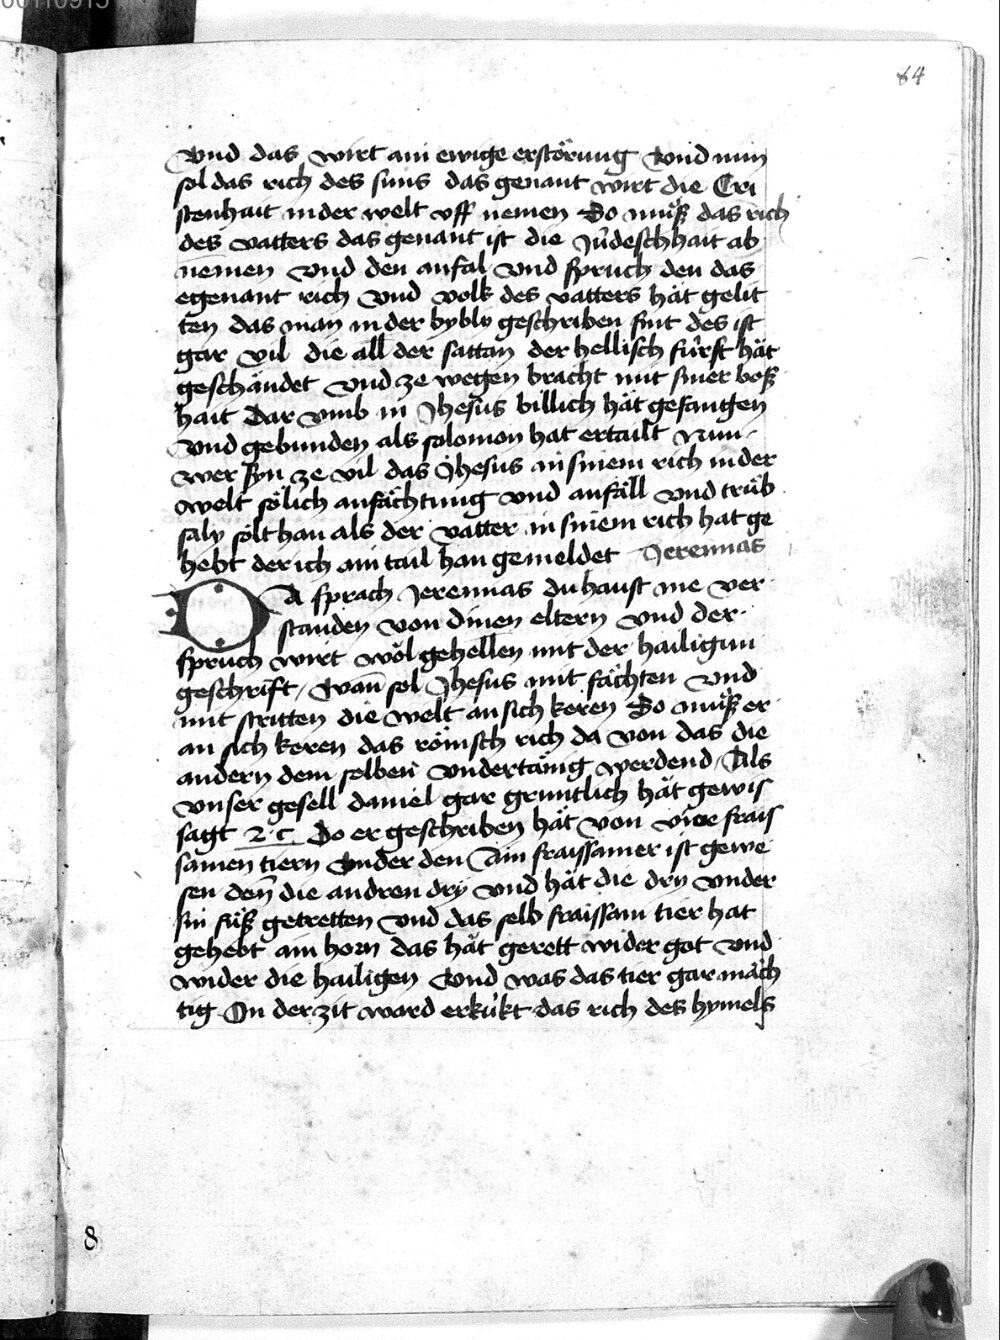 00110915
64
Vnd das wirt ain ewige erstörung Vnd nun
sol das rich des suns das genant wirt die Cri
stenhait in der welt vff nemen So muͦß das rich
des vatters das genant ist die Ju̇deschhait ab
nemen vnd den anfal vnd spruch den das
egenant rich vnd volk des vatters hăt gelit
ten das man in der bybly geschriben fint des ist
gar vil die all der sattan der hellisch fu̇rst hăt
geschändet vnd ze wegen bracht mit siner boß
hait Dar vmb in Jhesus billich hăt gefangen
vnd gebunden als solomon hat ertailt Nun
wer syn ze vil das Jhesus in sinem rich in der
welt sölich anfächtung vnd anfäll vnd trüb
saly sölt han als der vatter in sinem rich hat ge
hebt der ich ain tail han gemeldet Jeremias
DA sprach Jeremias du haust me ver
standen von dinen eltern vnd der
spruch wirt wol gehellen mit der hailigun
geschrift / Wan̄ sol Jhesus mit fächten vnd
mit stritten die welt an sich keren So muͦß er
an sich keren das römisch rich da von das die
andern dem selben vndertänig werdend / Als
vnser gesell daniel gar gruntlich hăt gewis
sagt 2c Do er geschriben hăt von vier frais
samen tiern Vnder den Ain fraissamer ist gewe
sen den̄ die andren dry vnd hăt die dry vnder
sin fuͤß getretten vnd das selb fraissam tier hat
gehebt ain horn das hăt gerett wider got vnd
wider die hailigen Vnd was das tier gar mäch
tig In der zit ward erku̇kt das rich des hymels
8